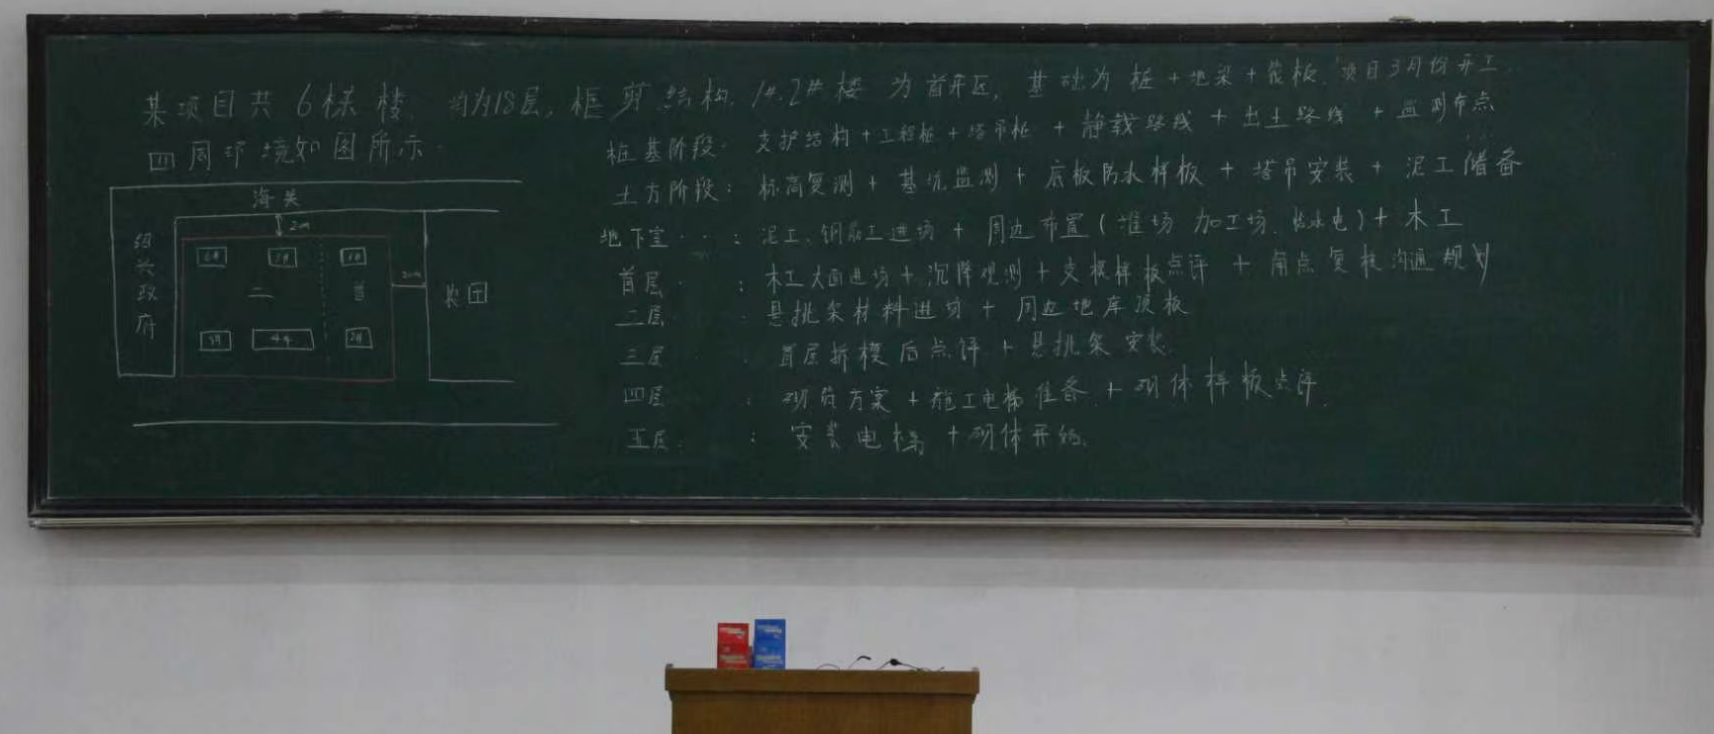 某项目共6栋楼，均为18层，框剪结构，1#.2#楼为首开区，基础为桩+地梁+筏板，项目3月份开工.
四周环境如图所示.
桩基阶段：支护结构+工程桩+塔吊桩+静载路线+出土路线+监测布点
土方阶段：标高复测+基坑监测+底板防水样板+塔吊安装+泥工储备
地下室··：泥工、钢筋工进场+周边布置(堆场 加工场、给水电)+木工
首层·：木工大面进场+沉降观测+支模样板点评+角点复核沟通规划
二层·：悬挑架材料进场+周边地库顶板
三层·：首层拆模后点评+悬挑架安装.
四层：砌筑方案+施工电梯准备+砌体样板点评.
五层.：安装电梯+砌体开始.
海关
2m
政府
6#
1#
二
首
20m
农田
3#
4#
2#